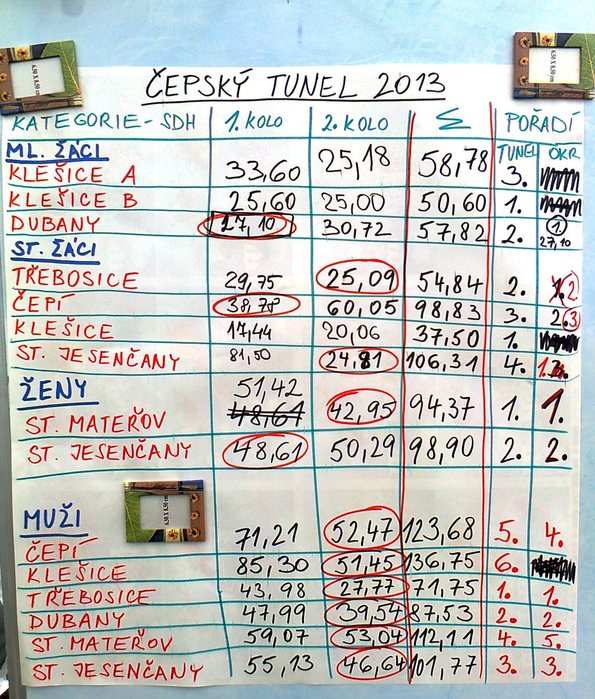 6,50 X 8,50 cm
6,50 X 8,50 cm
ČEPSKÝ TUNEL 2013
KATEGORIE-SDH 1. KOLO 2. KOLO Σ POŘADÍ
TUNEL OKR
ML. ŽÁCI
KLEŠICE A 33,60 25,18 58,78 3.
KLEŠICE B 25,60 25,00 50,60 1.
DUBANY 27,10 30,72 57,82 2. 1
27,10
ST. ŽÁCI
TŘEBOSICE 29,75 25,09 54,84 2. 2
ČEPÍ 38,78 60,05 98,83 3. 2. 3
KLEŠICE 17,44 20,06 37,50 1.
ST. JESENČANY 81,50 24,81 106,31 4. 1.
ŽENY 51,42
ST. MATEŘOV 48,61 42,95 94,37 1. 1.
ST. JESENČANY 48,61 50,29 98,90 2. 2.
6,50 X 8,50 cm
MUŽI
ČEPÍ 71,21 52,47 123,68 5. 4.
KLEŠICE 85,30 51,45 136,75 6.
TŘEBOSICE 43,98 27,77 71,75 1. 1.
DUBANY 47,99 39,54 87,53 2. 2.
ST. MATEŘOV 59,07 53,04 112,11 4. 5.
ST. JESENČANY 55,13 46,64 101,77 3. 3.